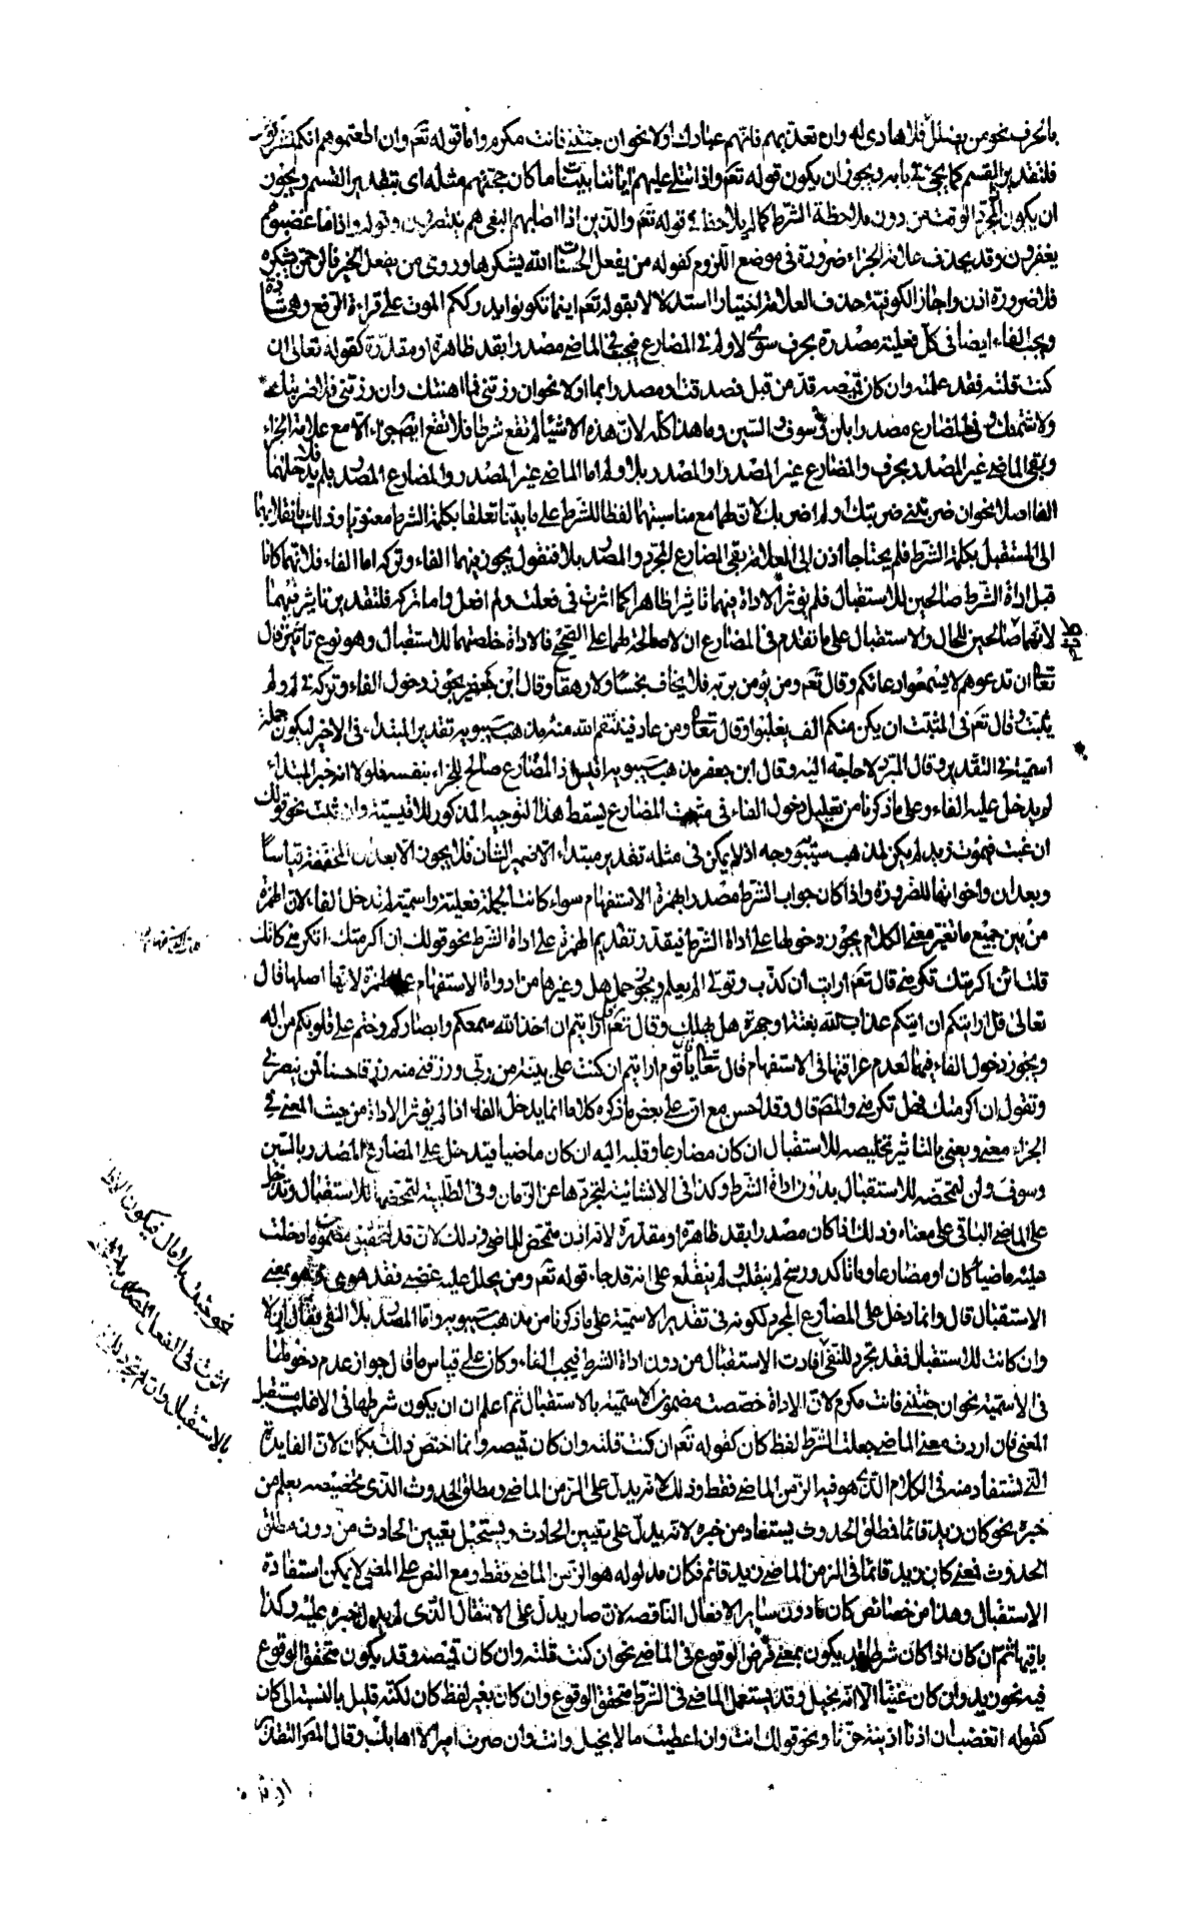 بالحرف نحو من يضلل فلا هادى له وان تعذبهم فانهم عبادك اولا نحو ان جئتنى فانت مكرم واما قوله تعم وان اطعتموهم انكم لمشركون
فلتقدير القسم كما يجئ فى بابه ويجوز ان يكون قوله تعم واذا تتلى عليهم اياتنا بينات ما كان حجتهم مثله اى بتقدير القسم ويجوز
ان يكون لمجرد الوقت من دون ملاحظة الشرط كما لم يلاحظ فى قوله تعم والذين اذا اصابهم البغى هم ينتصرون وقوله واذا ما غضبوا هم
يغفرون وقد يحذف علامة الجزاء ضرورة فى موضع اللزوم كقوله من يفعل الحسنات الله يشكرها وروى من يفعل الخير فالرحمن يشكره
فلا ضرورة اذن واجاز الكوفية حذف العلامة اختيارا استدلالا بقوله تعم اينما تكونوا يدرككم الموت على قراءة الرفع وهى شاذة
ويجب الفاء ايضا فى كل فعلية مصدرة بحرف سوى لا ولم فى المضارع فيجب فى الماضى مصدرا بقد ظاهرة او مقدرة كقوله تعالى ان
كنت قلته فقد علمته وان كان قميصه قد من قبل فصدقت او مصدرا بما او لا نحو ان زرتنى فما اهنتك وان زرتنى فلا ضربتك
ولا شتمتك وفى المضارع مصدرا بلن وسوف والسين وما هذا كله لان هذه الاشياء لم تقع شرطا فلا تقع ايضا جزاء الا مع علامة الجزاء
وبقى الماضى غير المصدر بحرف والمضارع غير المصدر او المصدر بلا ولم اما الماضى غير المصدر والمضارع المصدر بلم فلا يدخلهما
الفا اصلا نحو ان ضربتنى ضربتك ولم اضربك لان لهما مع مناسبتهما لفظا للشرط على ما بينا تعلقا بكلمة الشرط معنويا وذلك بانقلابهما
الى المستقبل بكلمة الشرط فلم يحتاجا اذن الى العلامة بقى المضارع المجرد والمصدر بلا فنقول يجوز فيهما الفاء وتركه اما الفاء فلانهما كانا
قبل اداة الشرط صالحين للاستقبال فلم يؤثر الاداة فيهما تاثيرا ظاهرا كما اثرت فى فعلت ولم افعل واما تركه فلتقدير تاثير فيهما
لانهما صالحين للحال والاستقبال على ما تقدم فى المضارع ان لا صالحة لهما على الصحيح فالاداة خلصتهما للاستقبال وهو نوع تاثير قال
تعالى ان تدعوهم لا يسمعوا دعائكم وقال تعم ومن يؤمن بربه فلا يخاف بخسا ولا رهقا وقال ابن جعفر يجوز دخول الفاء وتركه فى لم ولم
يثبت وقال تعم فى المثبت ان يكن منكم الف يغلبوا وقال تعالى ومن عاد فينتقم الله منه مذهب سيبويه تقدير المبتداء فى الاخير ليكون جملة
اسمية فى التقدير وقال المبرد لا حاجة اليه وقال ابن جعفر مذهب سيبويه اقيس اذ المضارع صالح للجزاء بنفسه فلولا انه خبر المبتداء
لم يدخل عليه الفاء وعلى ما ذكرنا من تعليل دخول الفاء فى مثبت المضارع يسقط هذا التوجيه المذكور للاقيسية وان ثبت نحو قولك
ان غبت فيموت زيد لم يكن لمذهب سيبويه وجه اذ لا يمكن فى مثله تقدير مبتداء الا ضمير الشان فلا يجوز الا بعد ان المخففة قياسا
وبعد ان واخواتها للضرورة واذا كان جواب الشرط مصدرا بهمزة الاستفهام سواء كانت الجملة فعلية او اسمية لم تدخل الفاء لان الهمزة
من بين جميع ما تغير معنى الكلام يجوز دخولها على اداة الشرط فيقدر تقديم الهمزة على اداة الشرط نحو قولك ان اكرمتك اتكرمنى كانك
قلت ائن اكرمتك تكرمنى قال تعم ارايت ان كذب وتولى الم يعلم ويجوز حمل هل وغيرها من ادواة الاستفهام على الهمزة لانها اصلها قال
تعالى قل ارايتكم ان اتيكم عذاب الله بغتة او جهرة هل يهلك وقال تعم قل ارايتم ان اخذ الله سمعكم وابصاركم وختم على قلوبكم من اله
ويجوز دخول الفاء فيهما لعدم عراقتها فى الاستفهام قال تعالى يا قوم ارايتم ان كنت على بينة من ربى ورزقنى منه رزقا حسنا فمن ينصرنى
وتقول ان اكرمتك فهل تكرمنى والمصر قال وقد احسن مع ان على بعض ما ذكره كلاما انما يدخل الفاء اذا لم يؤثر الاداة من حيث المعنى فى
الجزاء معنى ويعنى بالتاثير تخليصه للاستقبال ان كان مضارعا وقلبه اليه ان كان ماضيا فيدخل على المضارع المصدر بالسين
وسوف ولن لتمحضه للاستقبال بدون اداة الشرط وكذا فى الانشائية لتجردها عن الزمان وفى الطلبية لتمحضها للاستقبال وتدخل
على الماضى الباقى على معناه وذلك اذا كان مصدرا بقد ظاهرة او مقدرة لانه اذن متمحض للماضى وذلك لان قد لتحقيق مضمون ما دخلت
عليه ماضيا كان او مضارعا وما تاكد ورسخ لم ينقلب ولم ينقلع على انه قد جاء قوله تعم ومن يحلل عليه غضبى فقد هوى وهو بمعنى
الاستقبال قال وانما دخل على المضارع المجرد لكونه فى تقدير الاسمية على ما ذكرنا من مذهب سيبويه واما المصدر بلا النفى فقال ان لا
وان كانت للاستقبال فقد تجرد للنفى افادت الاستقبال من دون اداة الشرط فيجب الفاء وكان على قياس ما قال جواز عدم دخولها
فى الاسمية نحو ان جئتنى فانت مكرم لان الاداة خصصت مضمون الاسمية بالاستقبال ثم اعلم ان ان يكون شرطها فى الاغلب مستقبل
المعنى فان اردت معنى الماضى جعلت الشرط لفظ كان كقوله تعم ان كنت قلته وان كان قميصه وانما اختص ذلك بكان لان الفايدة
التى تستفاد منه فى الكلام الذى هو فيه الزمن الماضى فقط وذلك لانه يدل على الزمن الماضى ومطلق الحدوث الذى تخصيصه يعلم من
خبره نحو كان زيد قائما فمطلق الحدوث يستفاد من خبره لانه يدل على تعيين الحادث ويستحيل تعيين الحادث من دون مطلق
الحدوث فمعنى كان زيد قائما فى الزمن الماضى زيد قائم فكان مدلوله هو الزمن الماضى فقط ومع النص على المضى لا يمكن استفادة
الاستقبال وهذا من خصائص كان دون ساير الافعال الناقصة لان صار يدل على الانتقال الذى لم يدل خبره عليه وكذا
باقيها ثم ان كان اذا كان شرطا قد يكون بمعنى فرض الوقوع فى الماضى نحو ان كنت قلته وان كان قميصه وقد يكون متحقق الوقوع
فيه نحو زيد وان كان غنيا الا انه بخيل وقد يستعمل الماضى فى الشرط متحقق الوقوع وان كان بغير لفظ كان لكنه قليل بالنسبة الى كان
كقوله اتغضب ان اذنا قتيبة حزتا ونحو قولك انت وان اعطيت مالا بخيل وانت وان صرت اميرا لا اهابك وقال المصر التقدير